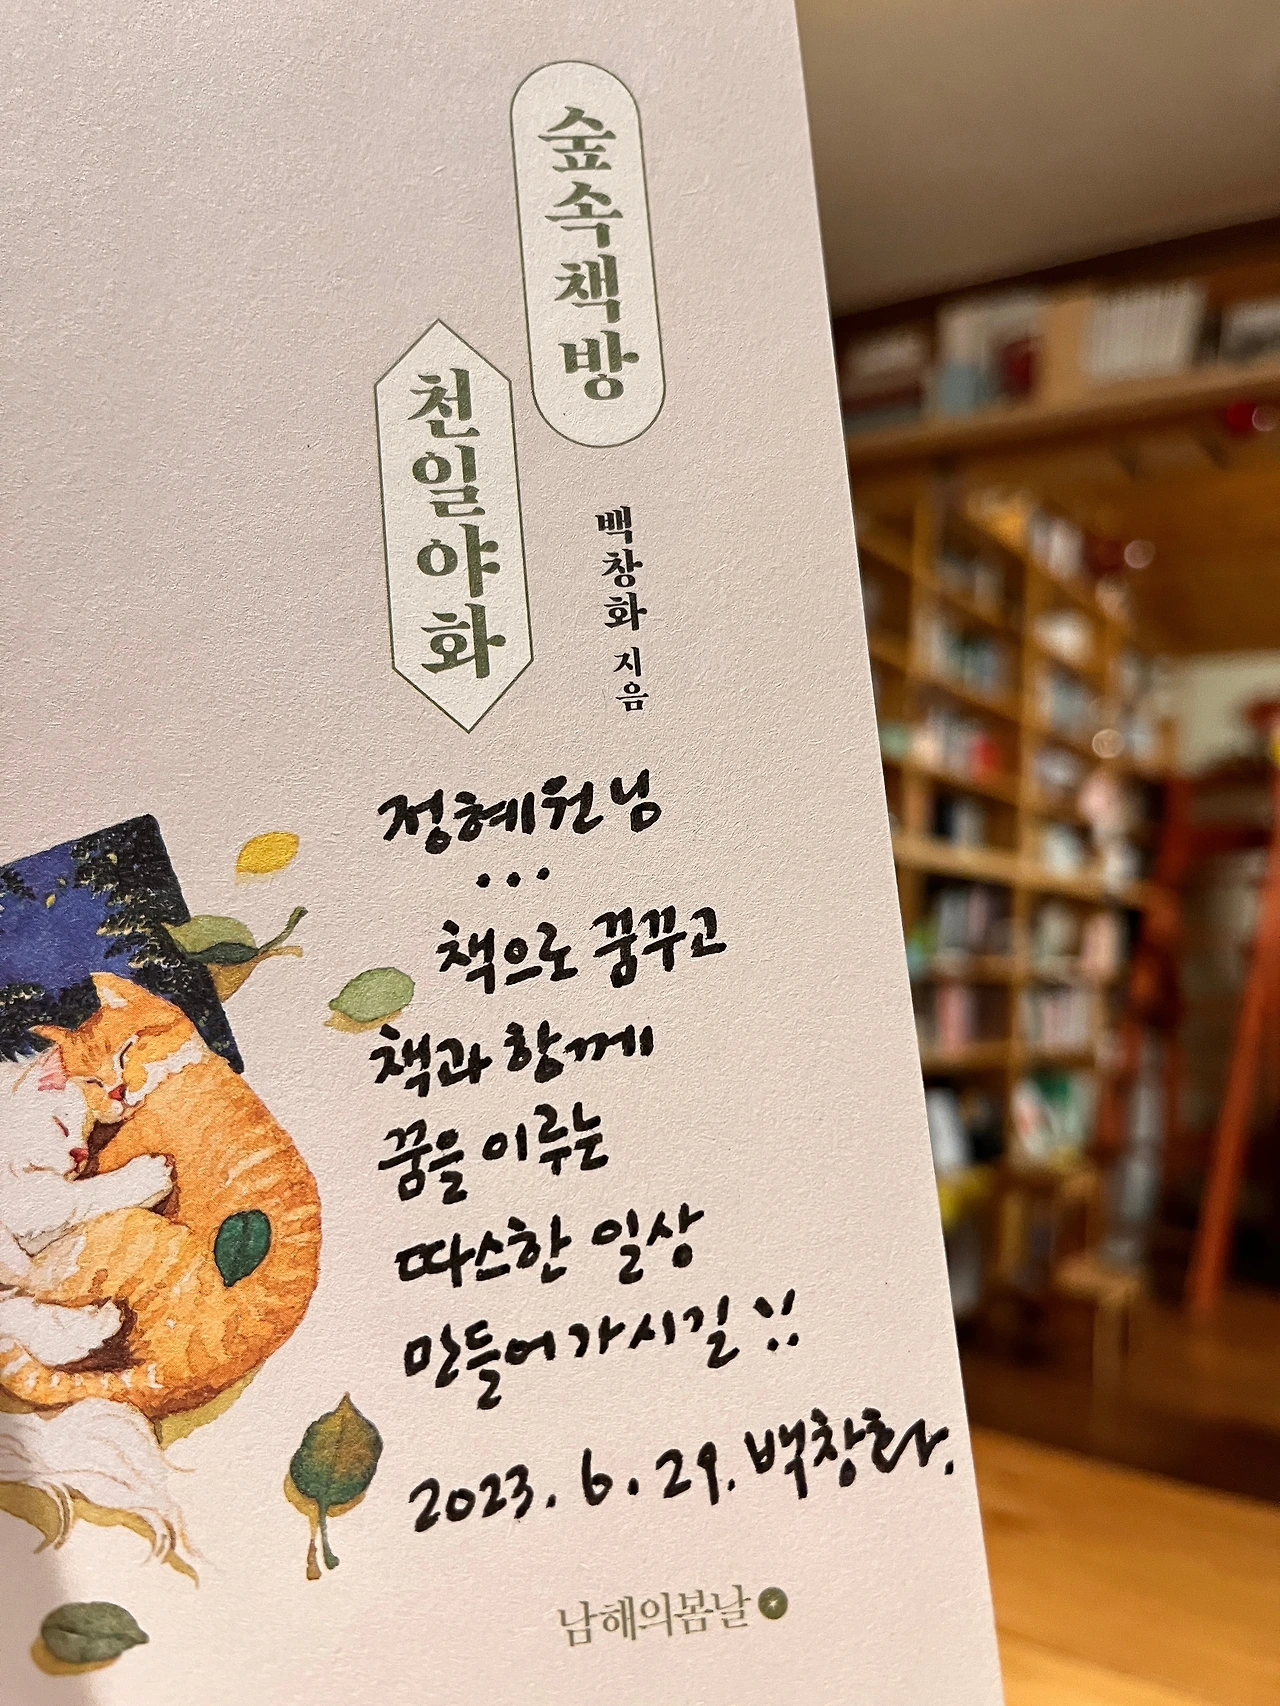 숲속책방
천일야화
백창화 지음
정혜원님
...
책으로 꿈꾸고
책과 함께
꿈을 이루는
따스한 일상
만들어가시길!!
2023. 6. 29. 백창화.
남해의봄날